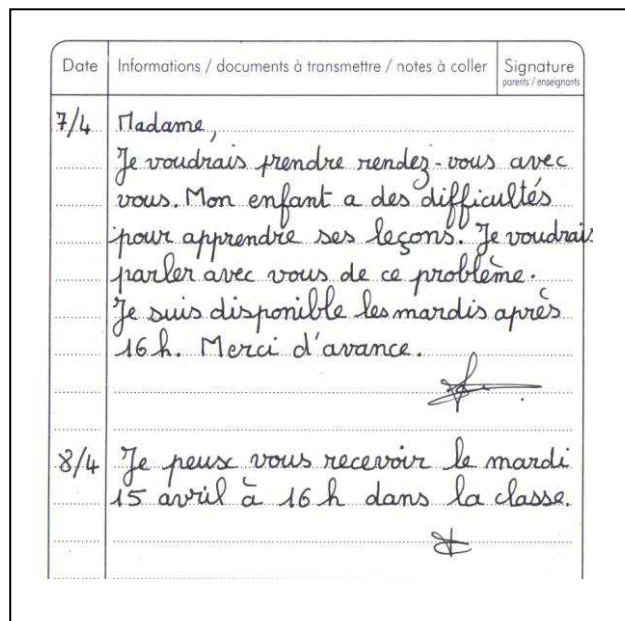 Date Informations / documents à transmettre / notes à coller Signature
parents / enseignants
7/4 Madame,
Je voudrais prendre rendez-vous avec
vous. Mon enfant a des difficultés
pour apprendre ses leçons. Je voudrais
parler avec vous de ce problème.
Je suis disponible les mardis après
16h. Merci d'avance.
8/4 Je peux vous recevoir le mardi
15 avril à 16h dans la classe.